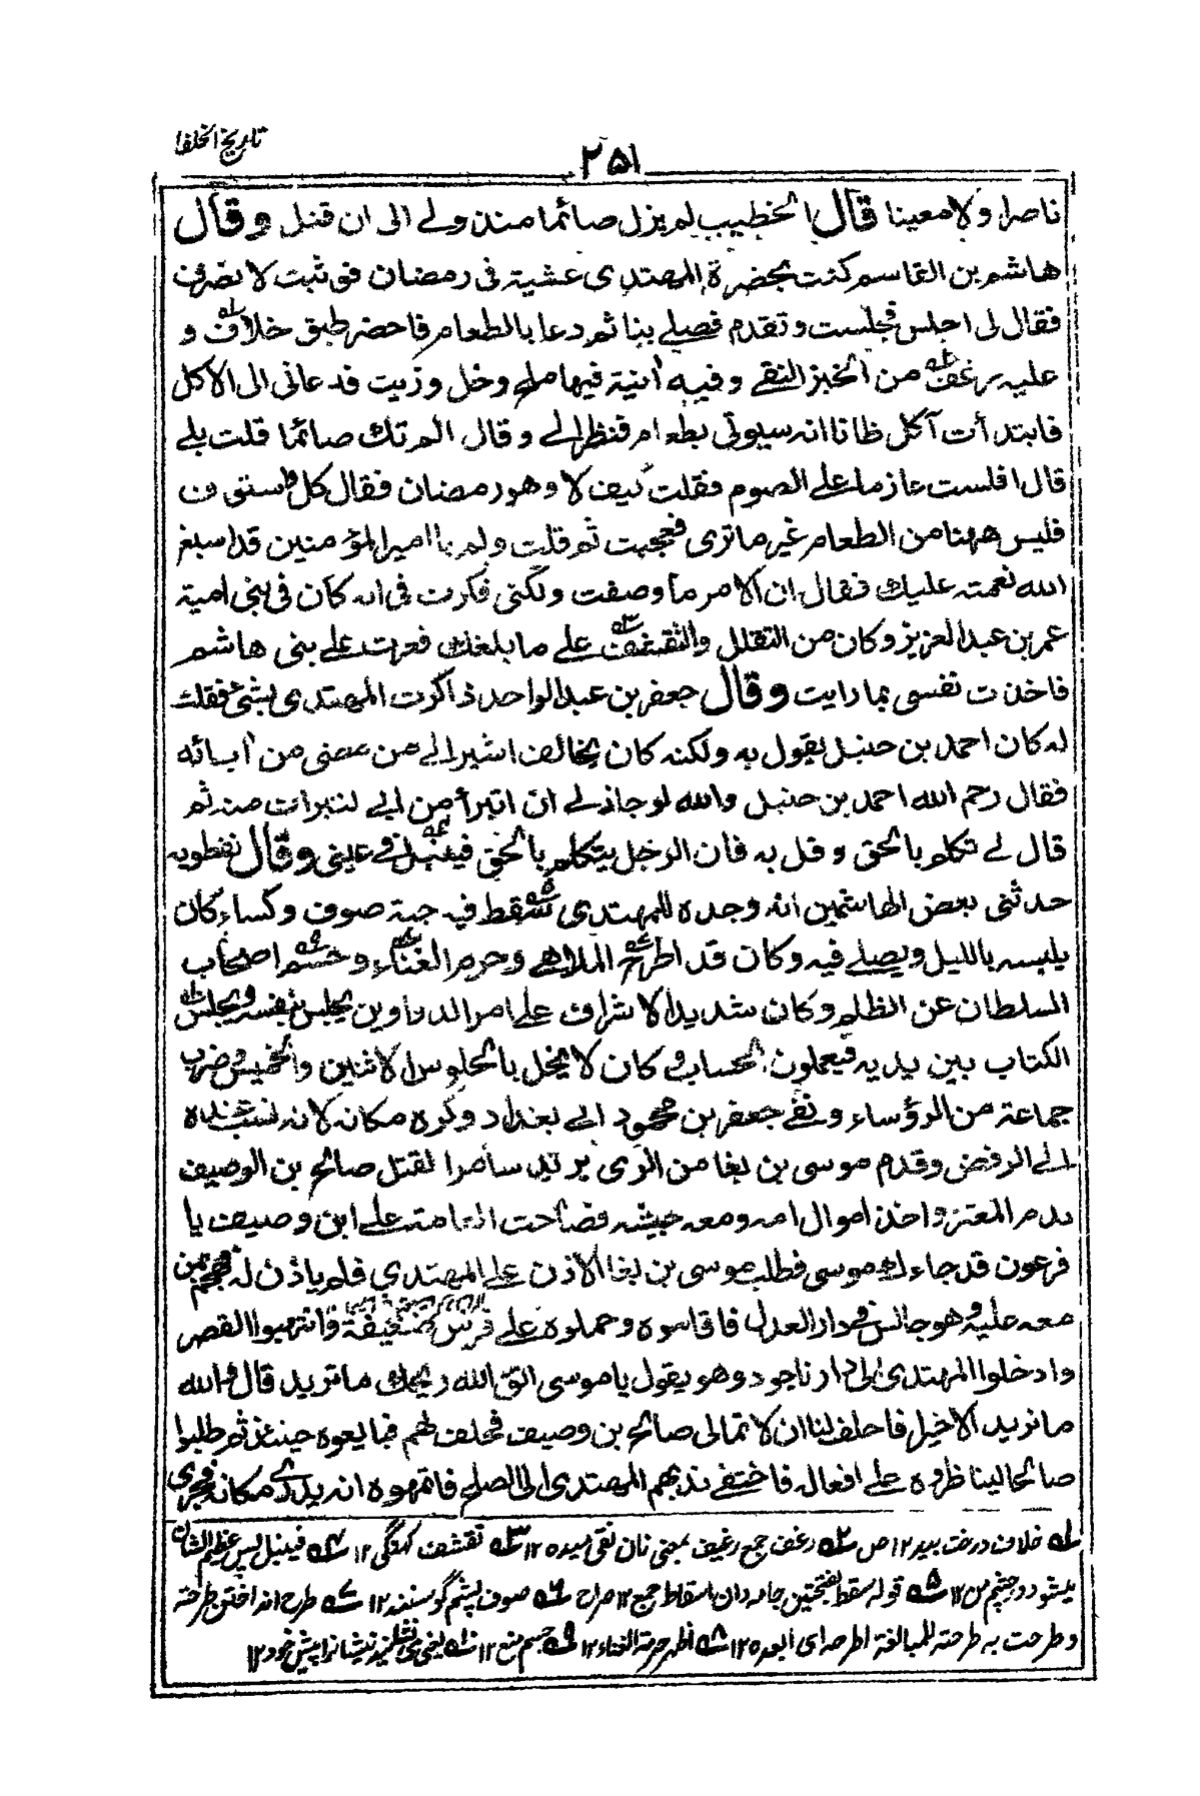 تاريخ الخلفا
٢٥١
ناصرا ولا معينا قال الخطيب لم يزل صائما منذ ولي الى ان قتل وقال
هاشم بن القاسم كنت بحضرة المهتدى عشية فى رمضان فوثبت لانصرف
فقال لى اجلس فجلست وتقدم فصلى بنا ثم دعا بالطعام فاحضر طبق خلاف و
عليه رغف من الخبز النقي وفيه آنية فيها ملح وخل وزيت فدعانى الى الاكل
فابتدأت آكل ظانا انه سيوتى بطعام فنظر الي وقال الم تك صائما قلت بلى
قال افلست عازما على الصوم فقلت كيف لا وهو رمضان فقال كل واستوف
فليس ههنا من الطعام غير ما ترى فعجبت ثم قلت ولم يا امير المؤمنين قد اسبغ
الله نعمته عليك فقال ان الامر ما وصفت ولكنى فكرت فى انه كان فى بنى امية
عمر بن عبد العزيز وكان من التقلل والتقشف على ما بلغك فغرت على بنى هاشم
فاخذت نفسى بما رايت وقال جعفر بن عبد الواحد ذاكرت المهتدى بشئ فقلت
له كان احمد بن حنبل يقول به ولكنه كان يخالف اشير الى من مضى من آبائه
فقال رحم الله احمد بن حنبل والله لو جاز لي ان اتبرأ من ابي لتبرات منه ثم
قال لي تكلم بالحق وقل به فان الرجل ليتكلم بالحق فينبل في عينى وقال نفطويه
حدثنى بعض الهاشميين انه وجد للمهتدى سفط فيه جبة صوف وكساء كان
يلبسه بالليل ويصلى فيه وكان قد اطرح الملاهي وحرم الغناء وحسم اصحاب
السلطان عن الظلم وكان شديد الاشراف على امر الدواوين يجلس بنفسه ويجلس
الكتاب بين يديه فيعملون الحساب وكان لا يخل بالجلوس الاثنين والخميس وضرب
جماعة من الرؤساء ونفى جعفر بن محمود الى بغداد وكره مكانه لانه نسب عنده
الى الرفض وقدم موسى بن بغا من الرى يريد سامرا لقتل صالح بن الوصيف
بدم المعتز واخذ اموال امه ومعه جيشه فصاحت العامة على ابن وصيف يا
فرعون قد جاءك موسى فطلب موسى بن بغا الاذن على المهتدى فلم ياذن له فهجم بمن
معه عليه وهو جالس فى دار العدل فاقاموه وحملوه على فرس ضعيفة وانتهبوا القصر
وادخلوا المهتدى الى دار ناجود وهو يقول يا موسى اتق الله ويحك ما تريد قال والله
ما نريد الا خيرا فاحلف لنا ان لا تمالى صالح بن وصيف فحلف لهم فبايعوه حينئذ ثم طلبوا
صالحا ليناظروه على افعاله فاختفى وندبهم المهتدى الى الصلح فاتهموه انه يدرى مكانه فجرى
١ه خلاف درخت بيد ١٢ ص ٢ه رغف جمع رغيف بمعنى نان نقى ميده ١٢ ٣ه تقشف كهنگى ١٢ ٤ه فينبل پس عظيم الشان
ميشود در چشم من ١٢ ٥ه قوله سفط بفتحتين جامه دان اسفاط جمع ١٢ صراح ٦ه صوف پشم گوسفند ١٢ ٧ه طرح انداختن طرحته
وطرحت به طرحته للمبالغة اطرحه اى ابعده ١٢ ٨ه اظهر حرمة الغناء ١٢ ٩ه حسم منع ١٢ ١٠ه يعنى مى نشانيد ايشانرا پيش خود ١٢